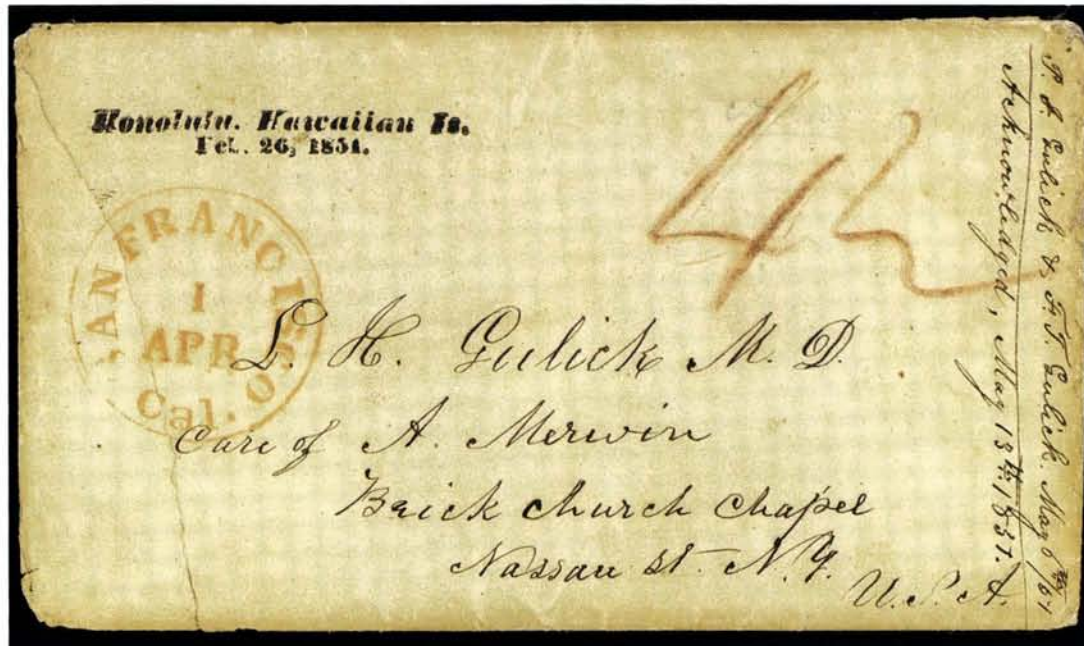 Honolulu. Hawaiian Is.
Feb. 26, 1851.
SAN FRANCISCO
1
APR
Cal.
42
L. H. Gulick M. D.
Care of A. Merwin
Brick Church Chapel
Nassau St. N. Y.
U. S. A.
P. J. Gulick & F. T. Gulick. May 6th/51
Acknowledged, May 13th, 1851.